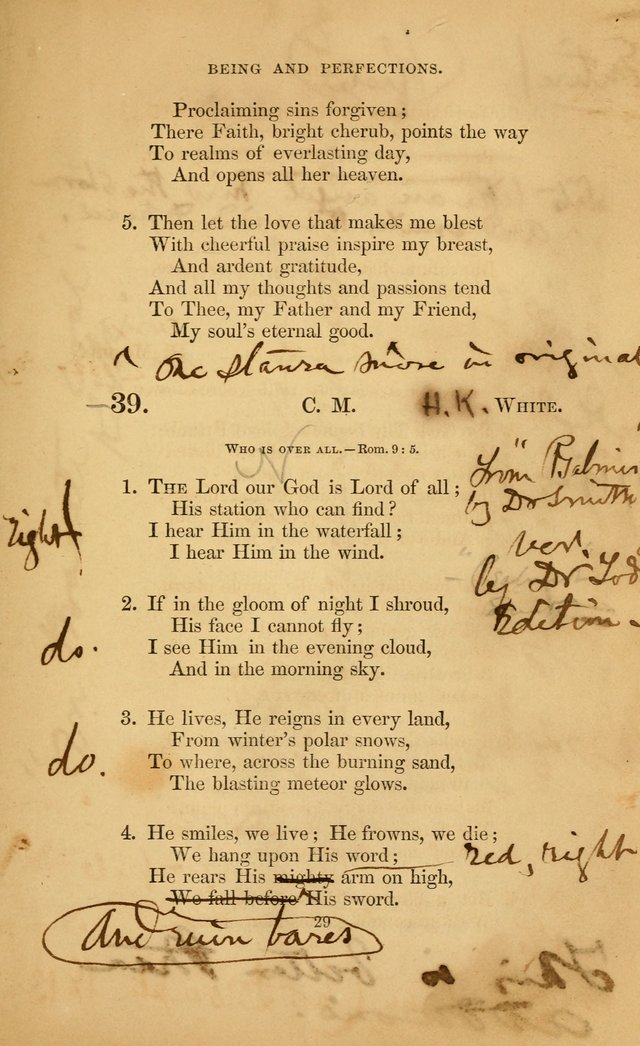 BEING AND PERFECTIONS.
Proclaiming sins forgiven;
There Faith, bright cherub, points the way
To realms of everlasting day,
And opens all her heaven.
5. Then let the love that makes me blest
With cheerful praise inspire my breast,
And ardent gratitude,
And all my thoughts and passions tend
To Thee, my Father and my Friend,
My soul's eternal good.
^ One stanza more in original
39. C. M. H. K. WHITE.
WHO IS OVER ALL.—Rom. 9: 5.
from "Psalmis
by Dr Smith
ver.
by Dr Tod
Edition.
1. THE Lord our God is Lord of all;
His station who can find?
I hear Him in the waterfall;
I hear Him in the wind.
right
2. If in the gloom of night I shroud,
His face I cannot fly;
I see Him in the evening cloud,
And in the morning sky.
do.
3. He lives, He reigns in every land,
From winter's polar snows,
To where, across the burning sand,
The blasting meteor glows.
do.
4. He smiles, we live; He frowns, we die;
We hang upon His word;
He rears His mighty arm on high,
We fall before ^ His sword.
red, right
29
And ruin bares